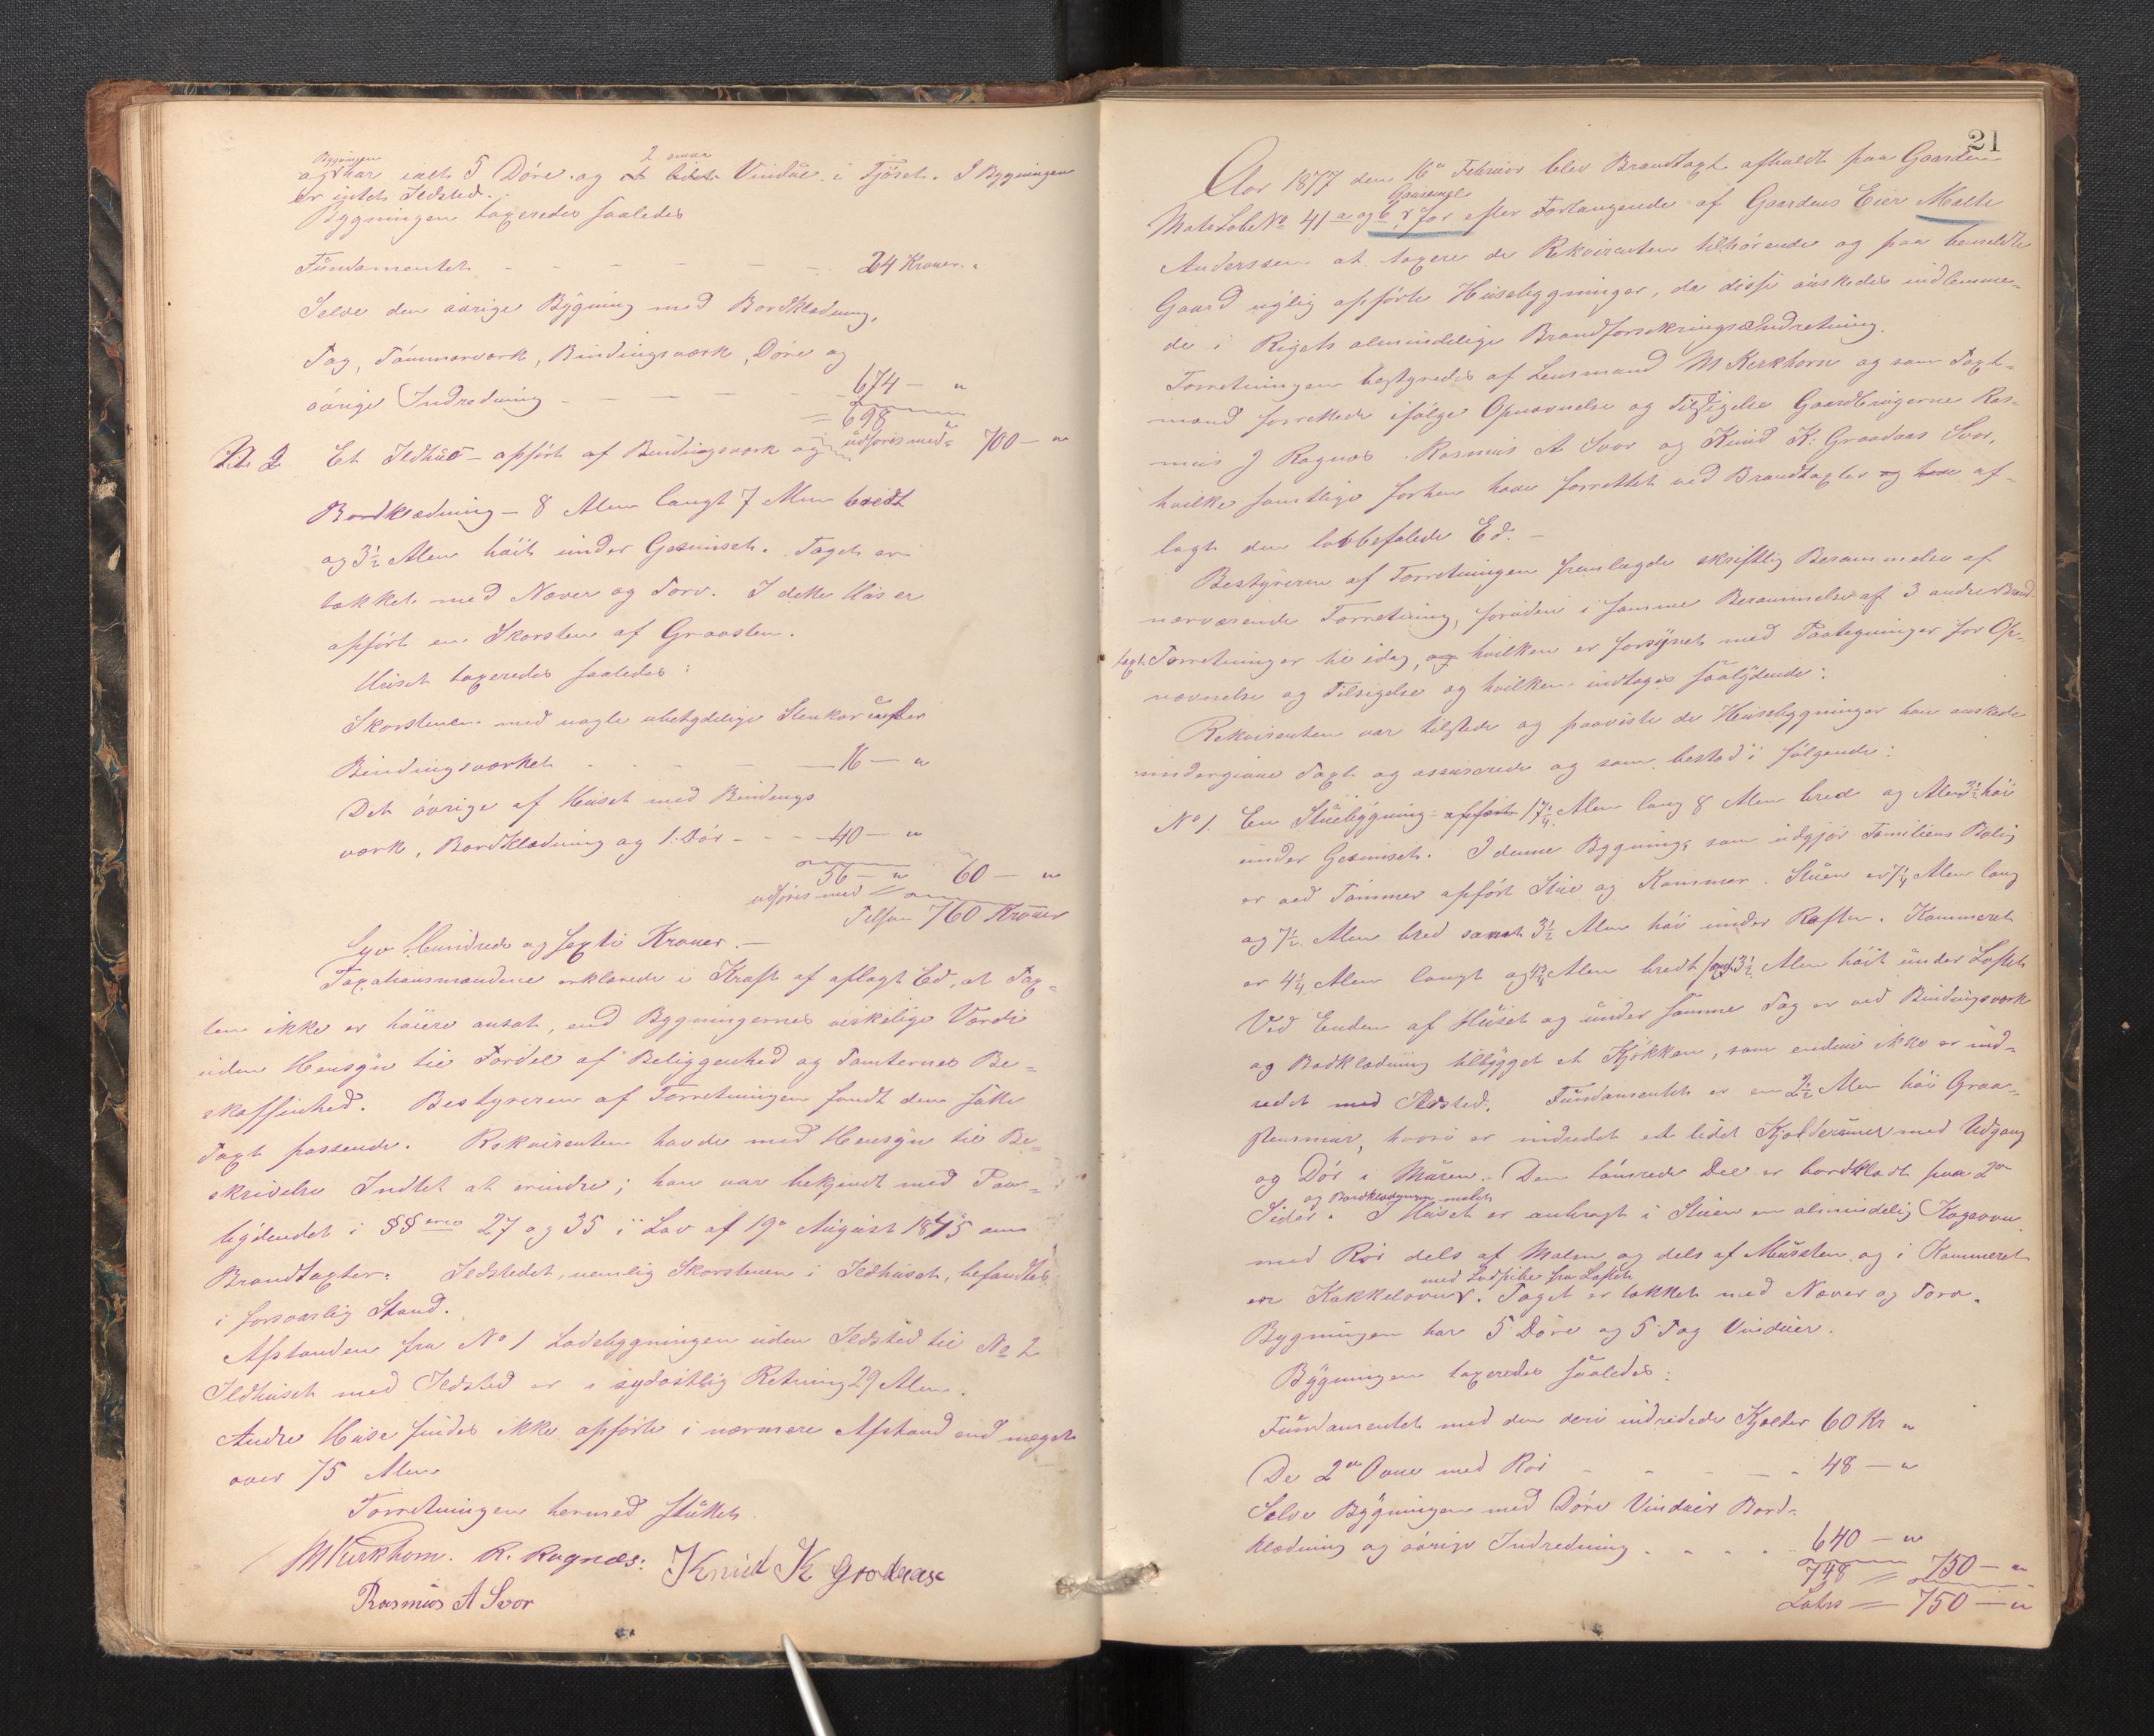 Bygningen
og har ialt 5 Døre og et lidet 2 smaa Vindue i Fjöset. I Bygningen
er intet Ildsted.
Bygningen taxeredes saaledes
Fundamentet 24 Kroner "
Selve den øvrige Bygning med Bordklædning,
Tag, Tømmerværk, Bindingsværk, Døre og
øvrige Indredning 674 — "
698
udføres med 700 — "
No 2 Et Ildhus opført af Bindingsværk og
Bordklædning – 8 Alen langt 7 Alen bredt
og 3½ Alen høit under Gesimset. Taget er
tækket med Næver og Torv. I dette Hus er
opført en Skorsten af Graasten.
Huset taxeredes saaledes:
Skorstenen med nogle ubetydelige Stenkar under
Bindingsværket — 16 — "
Det øvrige af Huset med Bindings
værk, Bordklædning og 1 Dør - - - 40 — "
56 — " 60 — "
udføres med
Tilsam 760 Kroner
Syv Hundrede og sexti Kroner. —
Taxationsmændene erklærede i Kraft af aflagt Ed, at Tax-
ten ikke er høiere ansat, end Bygningernes virkelige Værdi
uden Hensyn til Fordel af Beliggenhed og Tomternes Be-
skaffenhed. Bestyreren af Forretningen fandt den satte
Taxt passende. Rekvirenten havde med Hensyn til Be-
skrivelse Intet at erindre; han var bekjendt med Paa-
bydendet i §§erne 27 og 35 i Lov af 19de August 1845 om
Brandtaxter. Ildstedet, nemlig Skorstenen i Ildhuset, befandtes
i forsvarlig Stand.
Afstanden fra No 1 Ladebygningen uden Ildsted til No 2
Ildhuset med Ildsted er i sydostlig Retning 29 Alen.
Andre Huse findes ikke opførte i nærmere Afstand end noget
over 75 Alen
Forretningen hermed sluttet
M Kirkhorn. R. Ragnæs: Knud K Grodaas
Rasmus A Svor
21
Aar 1877 den 16de Februar blev Brandtaxt afholdt paa Gaarden
Gaasemyr
Mats Løbe No 41 a og b, for efter Forlangende af Gaardens Eier Malti
Anderssen at taxere de Rekvirenten tilhørende og paa bemeldte
Gaard nylig opførte Husebygninger, da disse ønskedes indlemme-
de i Rigets almindelige BrandforsikringsIndretning.
Forretningen bestyredes af Lensmand M Kirkhorn og som Taxt-
mænd forrettede ifølge Opnævnelse og Tilsigelse Gaardbrugerne Ras-
mus J Ragnæs. Rasmus A Svor og Knud K: Graadaas Svor,
hvilke samtlige forhen have forrettet ved Brandtaxter og have af-
lagt den lovbefalede Ed. –
Bestyreren af Forretningen fremlagde skriftlig Berammelse af
nærværende Forretning, foruden i samme Berammelse af 3 andre Brand
taxt Forretninger til idag, og hvilken er forsynet med Paategninger for Op-
nævnelse og Tilsigelse og hvilken indtages saalydende:
Rekvirenten var tilstede og paaviste de Husebygninger han ønskede
undergivne Taxt og assurerede og som bestod i følgende:
No 1. En Stuebygning opført 17¼ Alen lang 8 Alen bred og Alen 3½ høi
under Gesimset. I denne Bygning, som udgjør Familiens Bolig
er ved Tømmer opført Stue og Kammer. Stuen er 7¼ Alen lang
og 7½ Alen bred samt 3½ Alen høi under Raften. Kammeret
er 4¼ Alen langt og 4¾ Alen bredt samt 3½ Alen høit under Loftet
Ved Enden af Huset og under samme Tag er ved Bindingsværk
og Bordklædning tilbygget et Kjøkken, som endnu ikke er ind-
redet med Ildsted. Fundamentet er en 2½ Alen høi Graa-
stensmur, hvori er indredet et lidet Kjelderrum med Udgang
og Dør i Muren. Den tømrede Del er bordklædt paa 2de
og Bordklædningen malet
Sider. I Huset er anbragt i Stuen en almindelig Kogeovn
med Rør dels af Malm og dels af Mursten og i Kammeret
med Ludpibe fra Loftet
en Kakkelovn. Taget er tækket med Næver og Torv.
Bygningen har 5 Døre og 5 Fag Vinduer.
Bygningen taxeredes saaledes:
Fundamentet med den deri indredede Kjelder 60 Kr "
De 2de Ovne med Rør - - - - - 48 — "
Selve Bygningen med Døre Vinduer Bord-
klædning og øvrige Indredning . . . . 640 — "
748 750 — "
Latus 750 — "